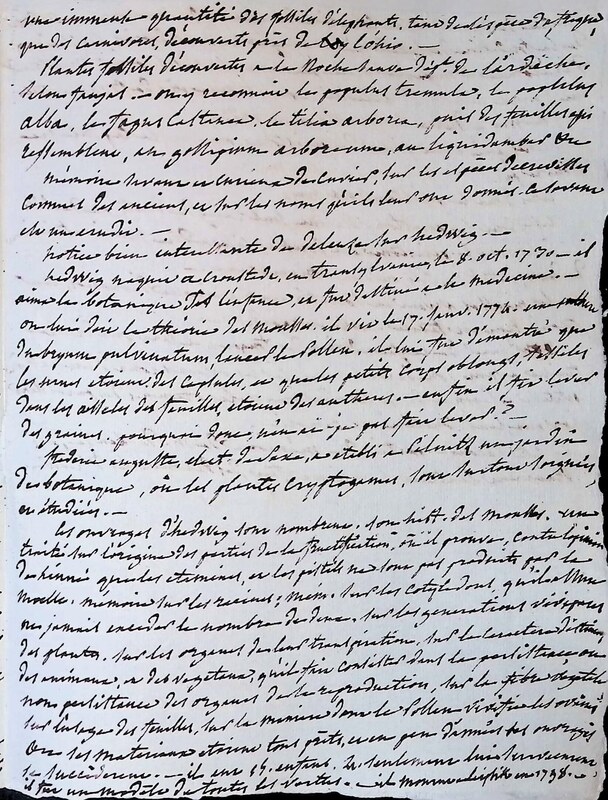 une immense quantité des fossiles d'éléphants, tant de l'espèce d'afrique,
que des carnivores, découverts près de l'ohio. —
Plantes fossiles découvertes à la Roche sauve dépt. de l'ardèche,
selon faujas. — on y reconnoit le populus tremula, le populus
alba, le fagus castanea, le tilia arborea, puis des feuilles qui
ressemblent, au gossipium arboreum, au liquidambar &c
mémoire savant et curieux de Cuvier, sur les espèces de crocodiles
connues des anciens, et sur les noms qu'ils leur ont donnés. Ce savant
est un erudit. —
notice bien interessante de deleuze sur hedwig. —
hedwig naquit à Cronstadt, en transylvanie, le 8. oct. 1730 — il
aima la botanique dès l'enfance, et fut destiné à la medecine. —
on lui doit la theorie des mousses. il vit le 17. janv. 1774.
du bryum pulvinatum, lancer le Pollen. il lui fut démontré que
les urnes etoient des capsules, et que les petits corps oblongs, sessiles
dans les aisselles des feuilles, etoient des anthères. — enfin il fit lever
des graines. pourquoi donc, n'en ai-je pas fait lever ?
frederic auguste, elect. de Saxe, a etabli à Pilnitz un jardin
de botanique, où les plantes cryptogames, sont surtout soignées,
et étudiées. —
les ouvrages d'hedwig sont nombreux. son hist. des mousses. — un
traité sur l'origine des parties de la fructification, où il prouve, contre l'opinion
de linné que les etamines, et les pistils ne sont pas produits par la
moelle. memoire sur les racines; mem. sur les cotyledons, qu'il
ne jamais exceder le nombre de deux. sur les generations vivipares
des plantes. sur les organes de leur transpiration, sur le caractere distinctif
des animaux, et des vegetaux, qu'il fait consister dans la persistance, ou
non persistance des organes de la reproduction, sur la fibre végétale
sur l'usage des feuilles, sur la manière dont le Pollen vivifie les ovaires
&c ses materiaux etoient tous prêts, et en peu d'années ses ouvrages
se succéderent. — il eut 15. enfans. 4. seulement lui survecurent
il fut un modèle de toutes les vertus. — il mourut à leipsick en 1798.